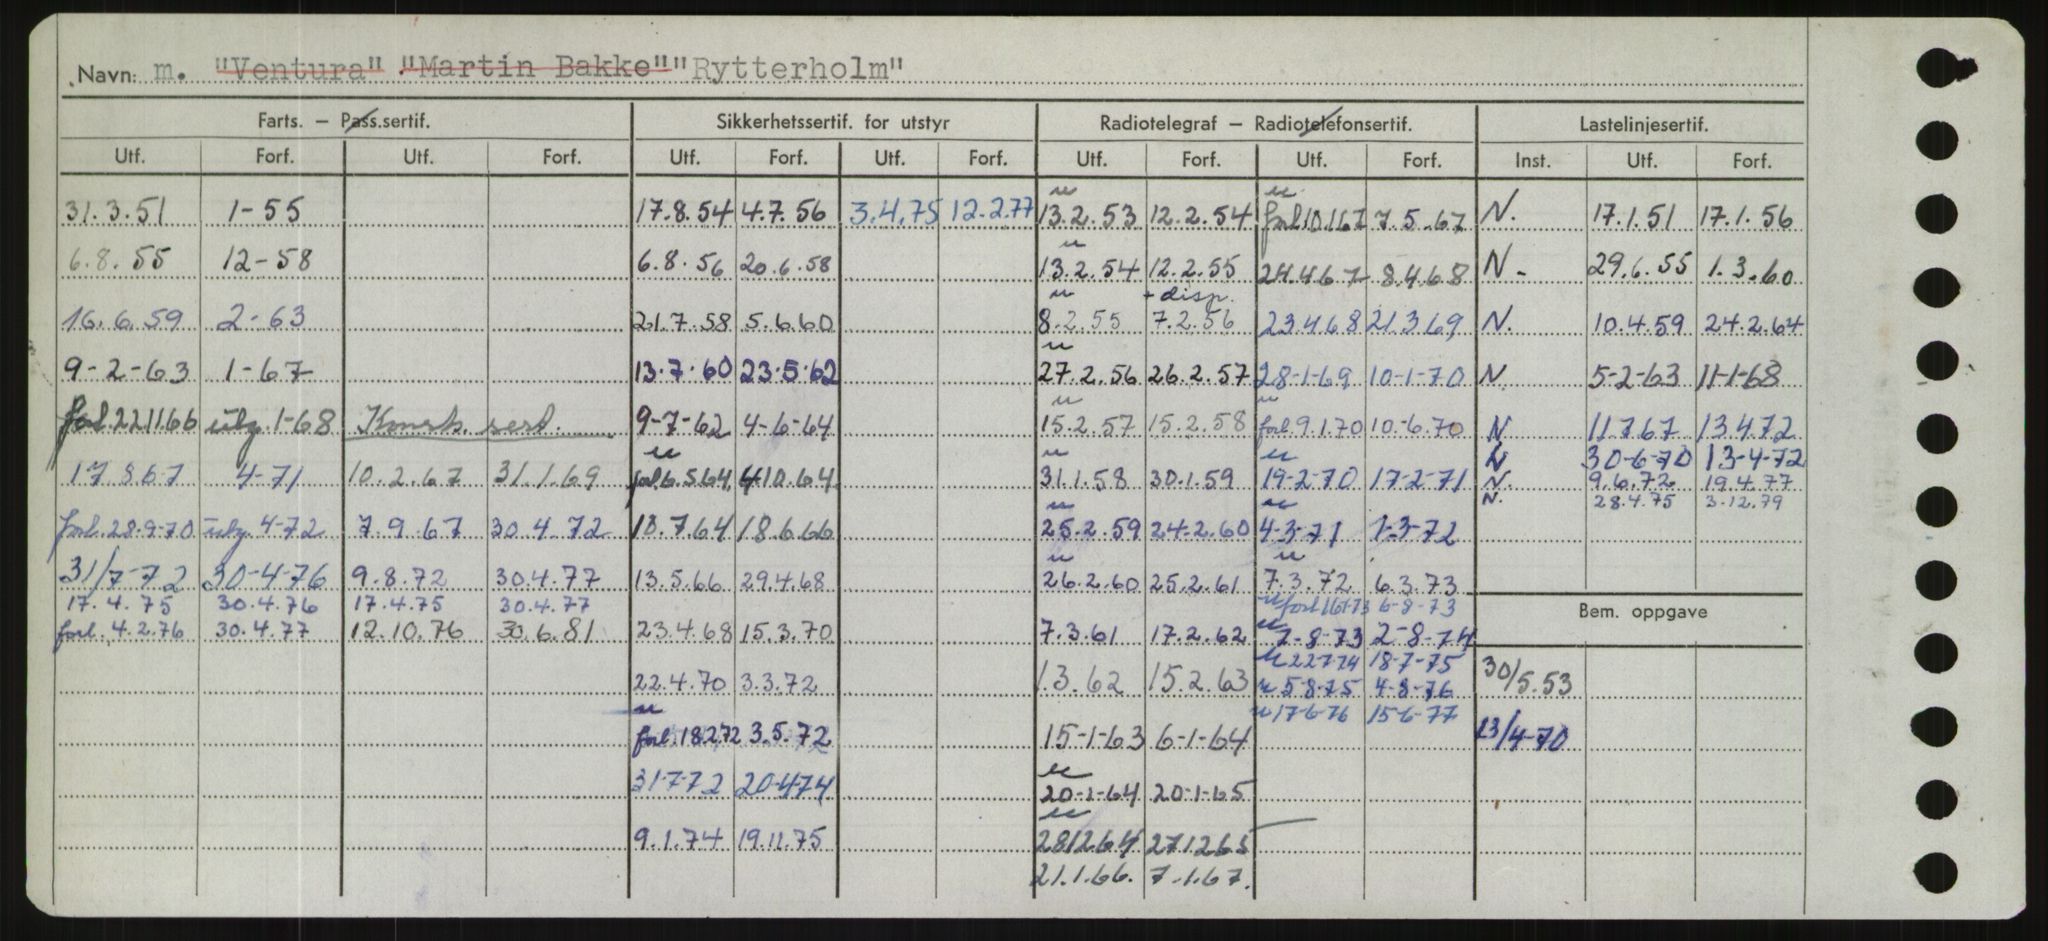 Navn: m. "Ventura" "Martin Bakke" "Rytterholm"
Farts. – Pass.sertif. Sikkerhetssertif. for utstyr Radiotelegraf – Radiotelefonsertif. Lastelinjesertif.
Utf. Forf. Utf. Forf. Utf. Forf. Utf. Forf. Utf. Forf. Utf. Forf. Inst. Utf. Forf.
31.3.51 1-55 17.8.54 4.7.56 3.4.75 12.2.77 13.2.53 12.2.54 forl. 10.1.67 7.5.67 N. 17.1.51 17.1.56
6.8.55 12-58 6.8.56 20.6.58 13.2.54 12.2.55 24.4.67 8.4.68 N. 29.6.55 1.3.60
+ disp.
16.6.59 2-63 21.7.58 5.6.60 8.2.55 7.2.56 23.4.68 21.3.69 N. 10.4.59 24.2.64
9-2-63 1-67 13.7.60 23.5.62 27.2.56 26.2.57 28-1-69 10-1-70 N. 5-2-63 11-1-68
forl. 22.11.66 1-68 Konstr. sert. 9-7-62 4-6-64 15.2.57 15.2.58 forl. 9.1.70 10-6.70 N 11.7.67 13.4.72
N 30-6-70 13-4-72
17.8.67 4-71 10.2.67 31.1.69 forl. 6.5.64 4.10.64 31.1.58 30.1.59 19-2-70 17-2-71 N 9.6.72 19.4.77
N. 28.4.75 3.12.79
forl. 28.9-70 4-72 7.9.67 30.4.72 18.7.64 18.6.66 25.2.59 24.2.60 4-3-71 1-3-72
31/7-72 30-4-76 9.8.72 30.4.77 13.5.66 29.4.68 26.2.60 25.2.61 7.3.72 6.3.73
17.4.75 30.4.76 17.4.75 30.4.77 forl. 6-8-73
Bem. oppgave
forl. 4.2.76 30.4.77 12.10.76 30.6.81 23.4.68 15.3.70 7.3.61 17.2.62 7-8-73 2-8-74
22.7.74 18-7-75
22.4.70 3.3.72 1.3.62 15.2.63 5-8-75 4-8-76 30/5.53
17-6-76 15-6-77
forl. 18.2.72 3.5.72 15-1-63 6-1-64 13/4-70
31-7-72 20-4-74 20-1-64 20-1-65
9.1.74 19.11.75 28.12.64 27.12.65
21.1.66. 7-1.67.